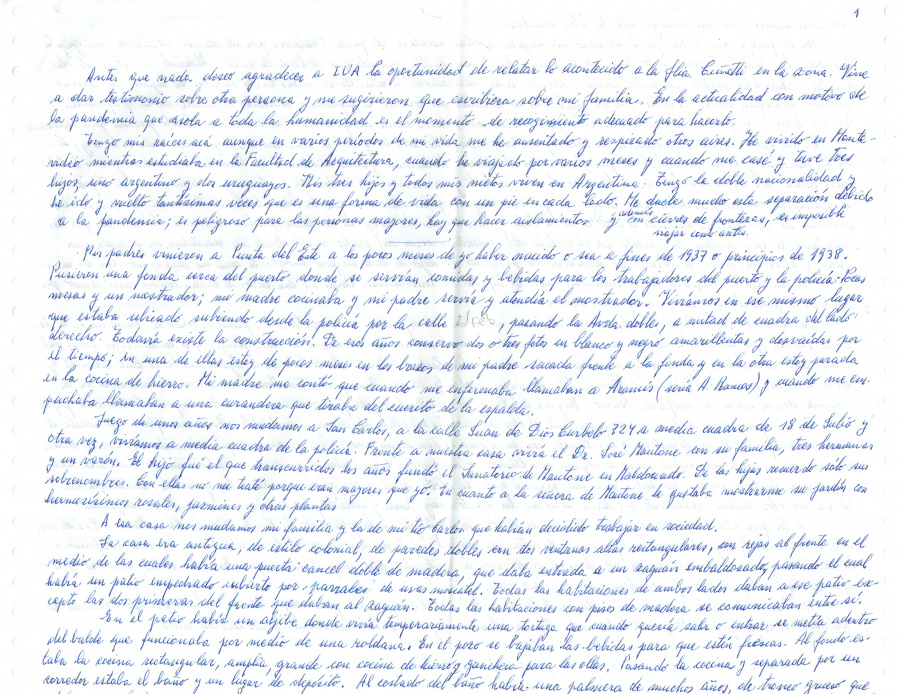 1
Antes que nada deseo agradecer a IVA la oportunidad de relatar lo acontecido a la flia. Cuñetti en la zona. Vine
a dar testimonio sobre otra persona y me sugirieron que escribiera sobre mi familia. En la actualidad con motivo de
la pandemia que asola a toda la humanidad es el momento de recogimiento adecuado para hacerlo.
Tengo mis raíces acá aunque en varios períodos de mi vida me he ausentado y respirado otros aires. He vivido en Monte-
video mientras estudiaba en la Facultad de Arquitectura, cuando he viajado por varios meses y cuando me casé y tuve tres
hijos, uno argentino y dos uruguayos. Mis tres hijos y todos mis nietos viven en Argentina. Tengo la doble nacionalidad y
he ido y vuelto tantísimas veces que es una forma de vida con un pie en cada lado. Me duele mucho esta separación debido
a la pandemia; es peligroso para las personas mayores, hay que hacer aislamientos y además con cierres de fronteras, es imposible
viajar como antes.
Mis padres vinieron a Punta del Este a los pocos meses de yo haber nacido o sea a fines de 1937 o principios de 1938.
Pusieron una fonda cerca del puerto donde se servían comidas y bebidas para los trabajadores del puerto y la policía. Pocas
mesas y un mostrador; mi madre cocinaba y mi padre servía y atendía el mostrador. Vivíamos en ese mismo lugar
que estaba ubicado subiendo desde la policía por la calle, pasando la Avda. dobles, a mitad de cuadra del lado
derecho. Todavía existe la construcción. De esos años conservo dos o tres fotos en blanco y negro amarillentas y desvaídas por
el tiempo; en una de ellas estoy de pocos meses en los brazos de mi padre sacada frente a la fonda y en la otra estoy parada
en la cocina de hierro. Mi madre me contó que cuando me enfermaba llamaban a Aramís (sería A. Ramos) y cuando me em-
pachaba llamaban a una curandera que tiraba del cuerito de la espalda.
Luego de unos años nos mudamos a San Carlos, a la calle Juan de Dios Curbelo 324 a media cuadra de 18 de Julio y
otra vez, vivíamos a media cuadra de la policía. Frente a nuestra casa vivía el Dr. José Mautone con su familia, tres hermanas
y un varón. El hijo fué el que transcurridos los años fundó el Sanatorio de Mautone en Maldonado. De las hijas recuerdo sólo sus
sobrenombres. Con ellas no me traté porque eran mayores que yo. En cuanto a la señora de Mautone le gustaba mostrarme su jardín con
hermosísimos rosales, jazmines y otras plantas
A esa casa nos mudamos mi familia y la de mi tío Carlos que habían decidido trabajar en sociedad.
La casa era antigua, de estilo colonial, de paredes dobles con dos ventanas altas rectangulares, con rejas al frente en el
medio de las cuales había una puerta cancel doble de madera, que daba entrada a un zaguán embaldosado, pasando el cual
había un patio empedrado cubierto por parrales de uvas moscatel. Todas las habitaciones de ambos lados daban a ese patio ex-
cepto las dos primeras del frente que daban al zaguán. Todas las habitaciones con pisos de madera se comunicaban entre sí.
En el patio había un aljibe donde vivía temporariamente una tortuga que cuando quería salir o entrar se metía adentro
del balde que funcionaba por medio de una roldana. En el pozo se bajaban las bebidas para que estén frescas. Al fondo es-
taba la cocina rectangular, amplia grande con cocina de hierro y ganchera para las ollas. Pasando la cocina y separada por un
corredor estaba el baño y un lugar de depósito. Al costado del baño había una palmera de muchos años, de tronco grueso que